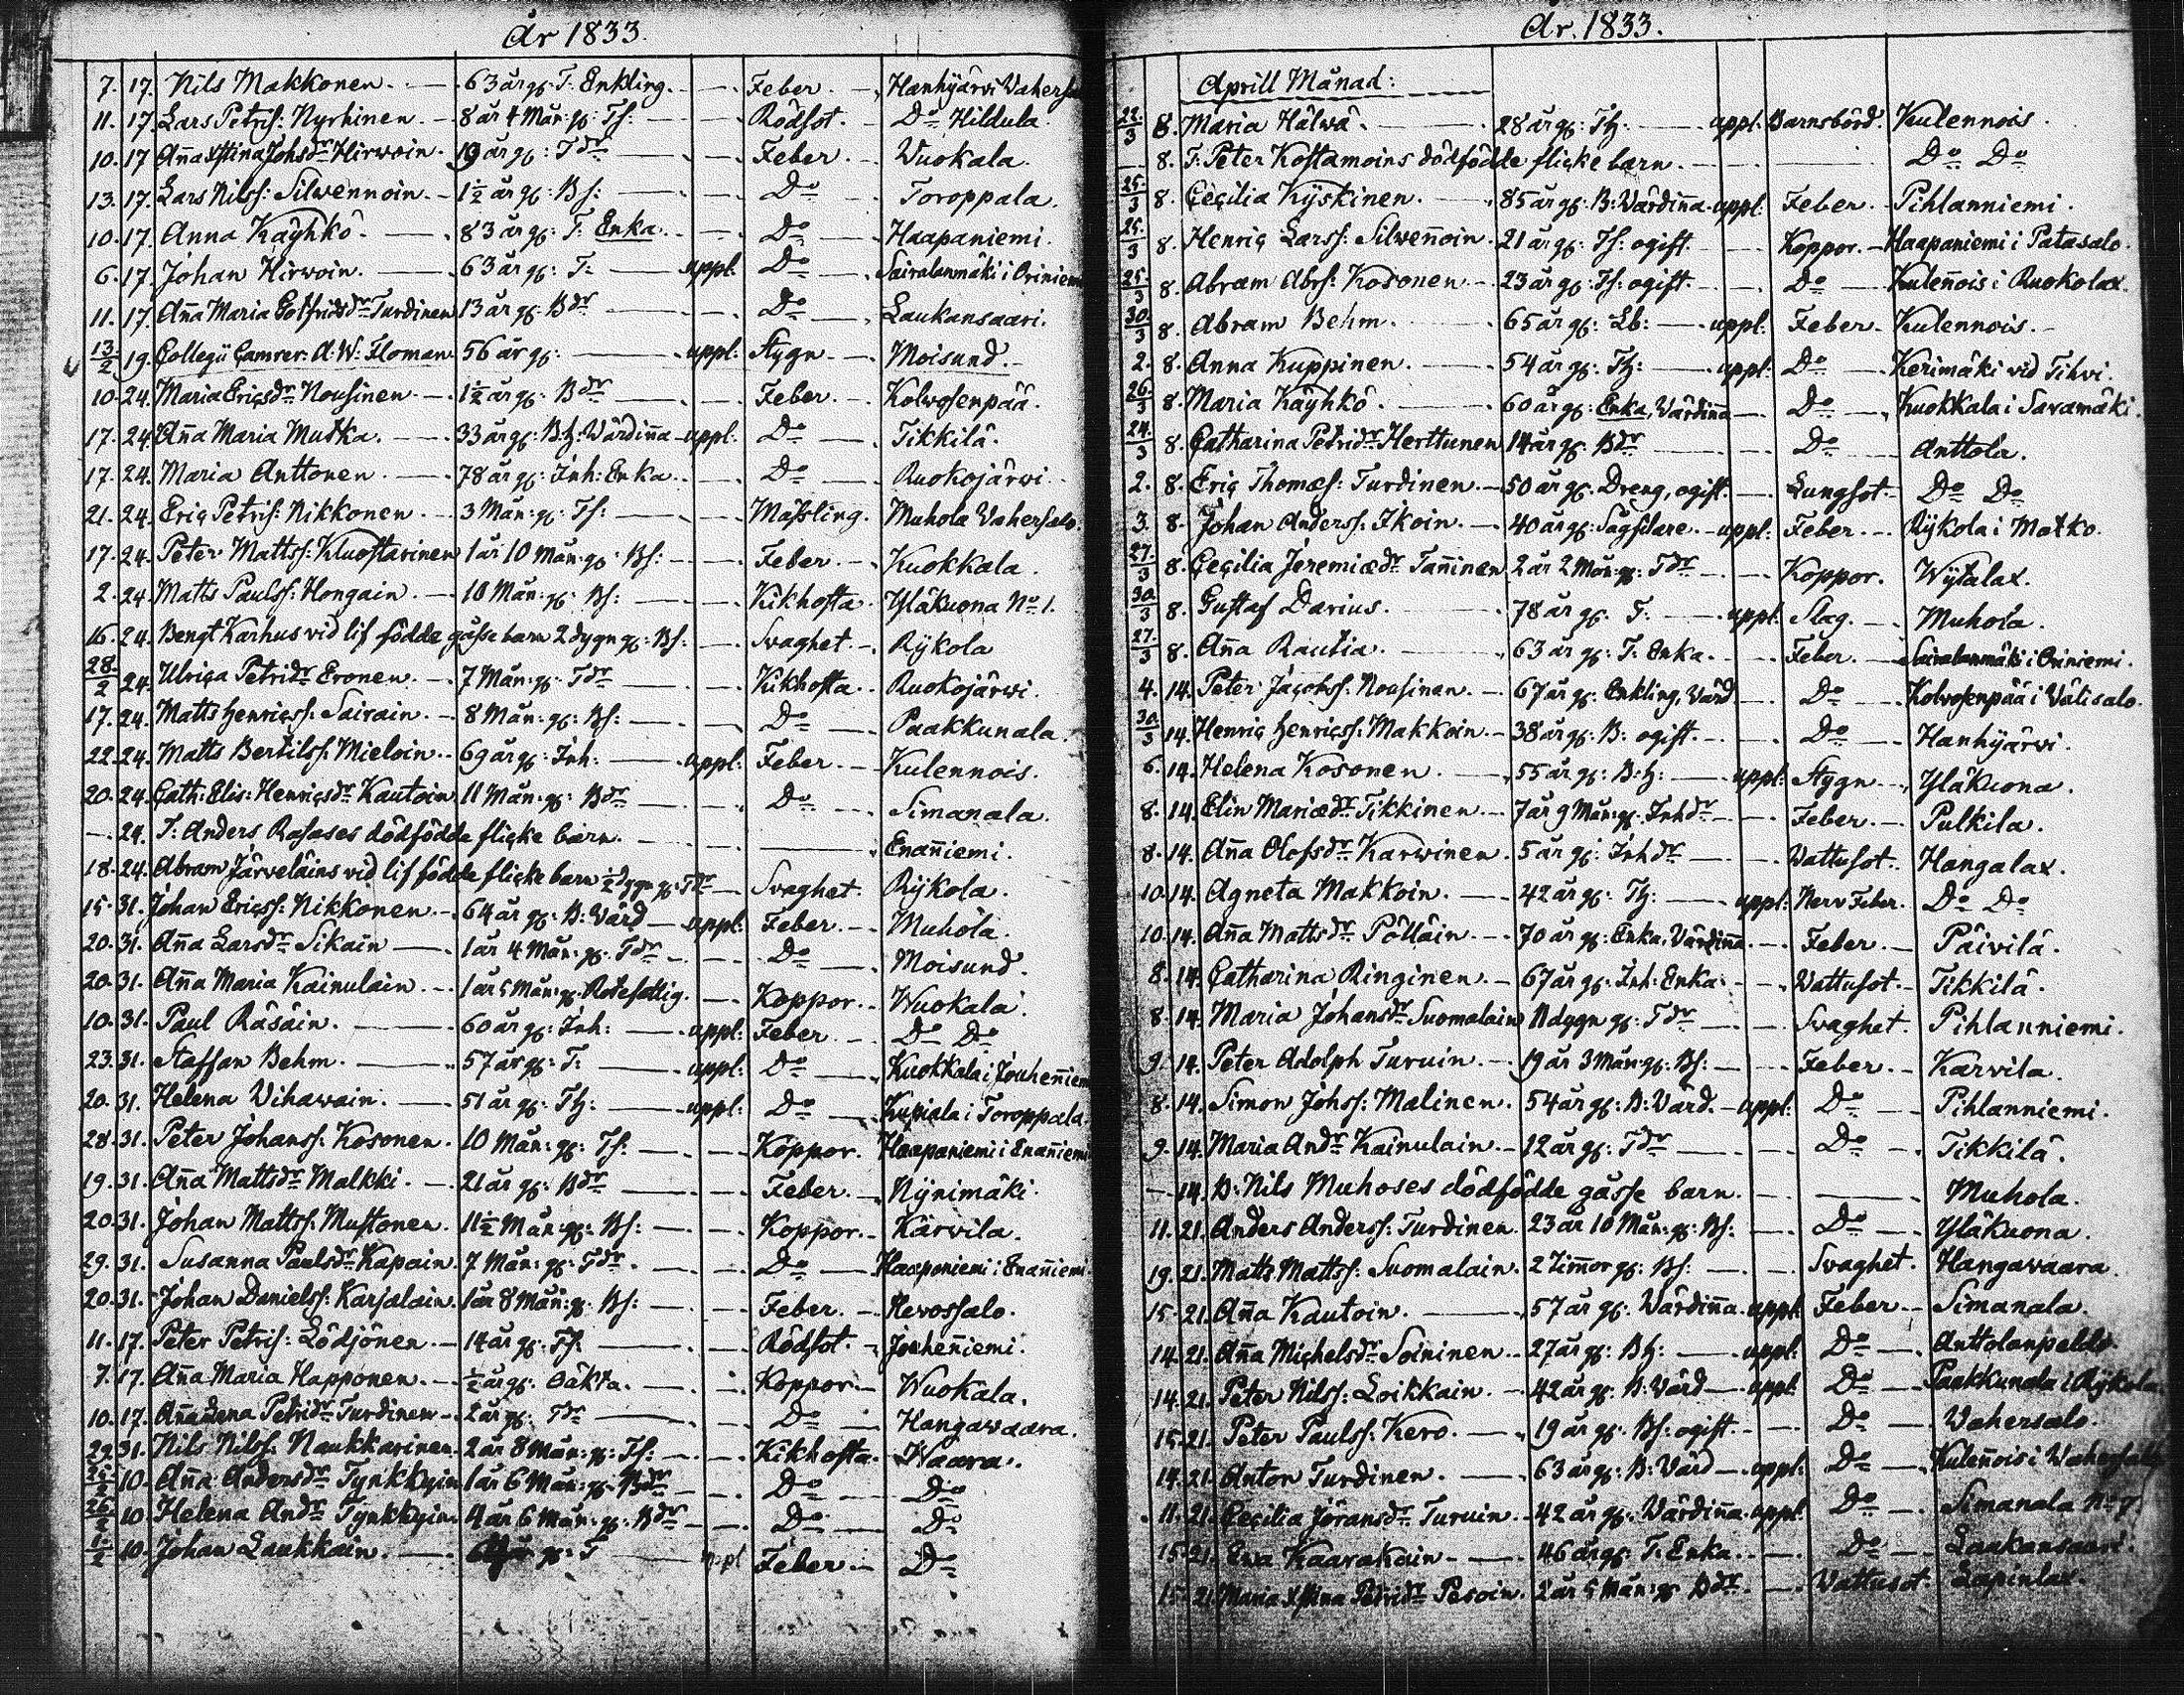 År 1833.
7. 17. Nils Makkonen. 63 år gl: T: Enkling. Feber. Hanhijärvi
11. 17. Lars Petris: Nyrhinen. 8 år 4 Mån: gl: Ts: Rödsot. Do Hildula.
10. 17 Aña Johsdr Hirwoin. 19 år gl: Tdr Feber. Wuokala.
13. 17. Lars Nilss: Silvennoin. 1½ år gl: Bs: Do Toroppala.
10. 17. Anna Käyhkö. 83 år gl: T: Enka. Do Haapaniemi.
6. 17. Johan Hirwoin. 63 år gl: T: uppl: Do Sairalanmäki i
11. 17. Aña Maria Gotfridsdr Turdinen 13 år gl: Bdr Do Laukansaari.
13/2 19. Collegii Camrer: A: W: Floman 56 år gl: uppl: Stygn Moisund.
10. 24. Maria Ericsdr Nousinen. 1½ år gl: Bdr Feber. Kolvosenpää.
17. 24. Aña Maria Mutka. 33 år gl: B:h: Värdiña uppl: Do Tikkilä.
17. 24. Maria Anttonen. 78 år gl: Inh: Enka. Do Ruokojärvi.
21. 24. Eric Petris: Nikkonen. 3 Mån: gl: Ts: Mässling. Muhola Vahersalo.
17. 24. Peter Mattss: 1 år 10 Mån: gl: Bs: Feber. Kuokkala.
2. 24. Matts Paulss: Hongain. 10 Mån: gl: Bs: Kikhosta. Yläkuona No 1.
16. 24. Bengt Karhus vid lif födde gåsse barn 2 dygn gl: Bs: Svaghet. Rykola
28/2 24. Ulrica Petridr Eronen. 7 Mån: gl: Tdr Kikhosta. Ruokojärvi.
17. 24. Matts Henricss: Sairain. 8 Mån: gl: Bs: Do Paakkunala.
22. 24. Matts Bertilss: Mieloin. 69 år gl: Inh: uppl: Feber. Kulennois.
20. 24. Cath: Elis: Henricsdr Kautoin 11 Mån: gl: Bdr Do Simanala.
24. T: Anders Rasases dödfödde flicke barn. Enañiemi.
18. 24. Abram Järveläins vid lif födde flicke barn ½ dygn gl: Tdr Svaghet. Rykola.
15. 31. Johan Ericss: Nikkonen. 64 år gl: B: Värd uppl: Feber. Muhola.
20. 31. Aña Larsdr Sikain 1 år 4 Mån: gl: Tdr Do Moisund.
20. 31. Aña Maria Kainulain. 1 år 5 Mån: gl: Rotefattig. Koppor. Wuokala.
10. 31. Paul Räsäin. 60 år gl: Inh: uppl: Feber. Do Do
23. 31. Staffan Behm. 57 år gl: T: uppl: Do Kuokkala i
20. 31. Helena Vihavain. 51 år gl: Th: uppl: Do Kupiala i Toroppala.
28. 31. Peter Johanss: Kosonen. 10 Mån: gl: Ts: Koppor. Haapaniemi i Enañiemi
19. 31. Aña Mattsdr Malkki. 21 år gl: Bdr Feber. Nynimäki.
20. 31. Johan Mattss: Mustonen. 11½ Mån: gl: Bs: Koppor. Kärvila.
29. 31. Susanna Paulsdr Kapain 7 Mån: gl: Tdr. Do Haapaniemi i Enañiemi.
20. 31. Johan Danielss: Karjalain. 1 år 8 Mån: gl: Bs: Feber. Hevossalo.
11. 17. Peter Petris: Lödjönen. 14 år gl: Ts: Rödsot. Jouheñiemi.
7. 17. Aña Maria Happonen. ½ år gl: Oäkta. Koppor. Wuokala.
10. 17. Aña Lena Petridr Turdinen 2 år gl: Tdr Do Hangavaara.
29. 31. Nils Nilss: Naukkarinen. 2 år 8 Mån: gl: Ts: Kikhosta. Waara.
10. Aña Andersdr Tynkkyin 1 år 6 Mån: gl: Bdr Do Do
26/2 10. Helena Andr Tynkkyin. 4 år 6 Mån: gl: Bdr Do Do
1/2 10. Johan Laukkain. gl: T uppl Feber. Do
År. 1833.
Aprill Månad:
22/3 8. Maria Hälwä. 28 år gl: Th: uppl: Barnsbörd. Kulennois.
8. T: Peter Kostamoins dödfödde flicke barn. Do Do
25/3 8. Cecilia Kyskinen. 85 år gl: B: Värdiña uppl: Feber. Pihlanniemi.
25/3 8. Henric Larss: Silveñoin. 21 år gl: Ts: ogift. Koppor. Haapaniemi i Patasalo.
25/3 8. Abram Abrs: Kosonen. 23 år gl: Ts: ogift. Do Kuleñois i Ruokolax.
30/3 8. Abram Behm. 65 år gl: Lb: uppl: Feber. Kulennois.
2. 8. Anna Kuppinen. 54 år gl: Th: uppl: Do Kerimäki vid Tihvi.
26/3 8. Maria Käyhkö. 60 år gl: Enka, Värdiña Do Kuokkala i Savamäki.
24/3 8. Catharina Petridr Herttunen 14 år gl: Bdr Do Anttola.
2. 8. Eric Thomæs: Turdinen. 50 år gl: Dreng, ogift. Lungsot. Do Do
3. 8. Johan Anderss: Ikoin. 40 år gl: Sagfilare. uppl: Feber. Rykola i Matko.
27/3 8. Cecilia Jeremiædr Tañinen 2 år 2 Mån: gl: Tdr Koppor. Wytalax.
30/3 8. Gustaf Darius. 78 år gl: T: uppl: Slag. Muhola.
27/3 8. Aña Rautia. 63 år gl: T: Enka. Feber. Sairalanmäki i Oriniemi.
4. 14. Peter Jacobss: Nousinen. 67 år gl: Enkling, Värd Do Kolvosenpää i Välisalo.
30/3 14. Henric Henricss: Makkoin. 38 år gl: B: ogift. Do Hanhijärvi.
6. 14. Helena Kosonen. 55 år gl: B:h: uppl: Stygn Yläkuona.
8. 14. Elin Mariædr Tikkinen. 7 år 9 Mån: gl: Inhdr Feber. Pulkila.
8. 14. Aña Olofsdr Karvinen. 5 år gl: Inhdr Vattusot. Hangalax.
10. 14. Agneta Makkoin. 42 år gl: Th: uppl: Nerv Feber. Do Do
10. 14. Aña Mattsdr Pölläin. 70 år gl: Enka, Värdiña. Feber. Päivilä.
8. 14. Catharina Ringinen. 67 år gl: Inh: Enka. Vattusot. Tikkilä.
8. 14. Maria Johansdr Suomalain 11 dygn gl: Tdr Svaghet. Pihlanniemi.
9. 14. Peter Adolph Turuin. 19 år 3 Mån: gl: Bs: Feber. Karvila.
8. 14. Simon Johss: Malinen. 54 år gl: B: Värd. uppl: Do Pihlanniemi.
9. 14. Maria Andr Kainulain. 12 år gl: Tdr Do Tikkilä.
14. B: Nils Muhoses dödfödde gåsse barn. Muhola.
11. 21. Anders Anderss: Turdinen. 23 år 10 Mån: gl: Bs: Do Yläkuona.
19. 21. Matts Mattss: Suomalain. 2 Timmor gl: Bs: Svaghet. Hangavaara.
15. 21. Aña Kautoin. 57 år gl: Värdiña. uppl: Feber. Simanala.
14. 21. Aña Michelsdr Soininen. 27 år gl: Bh: uppl: Do Anttolanpeldo.
14. 21. Peter Nilss: Loikkain. 42 år gl: B: Värd uppl: Do Paakkunala i Rykola.
15. 21. Peter Paulss: Kero. 19 år gl: Bs: ogift. Do Vahersalo.
14. 21. Anton Turdinen. 63 år gl: B: Värd uppl: Do Kuleñois i
11. 21. Cecilia Jöransdr Turuin. 42 år gl: Värdiña. uppl: Do Simanala No 7
15. 21. Ewa Kaarakain. 46 år gl: T: Enka. Do Laukansaari.
15. 21. Maria Petridr Pesoin. 2 år 5 Mån: gl: Bdr Vattusot. Lapinlax.